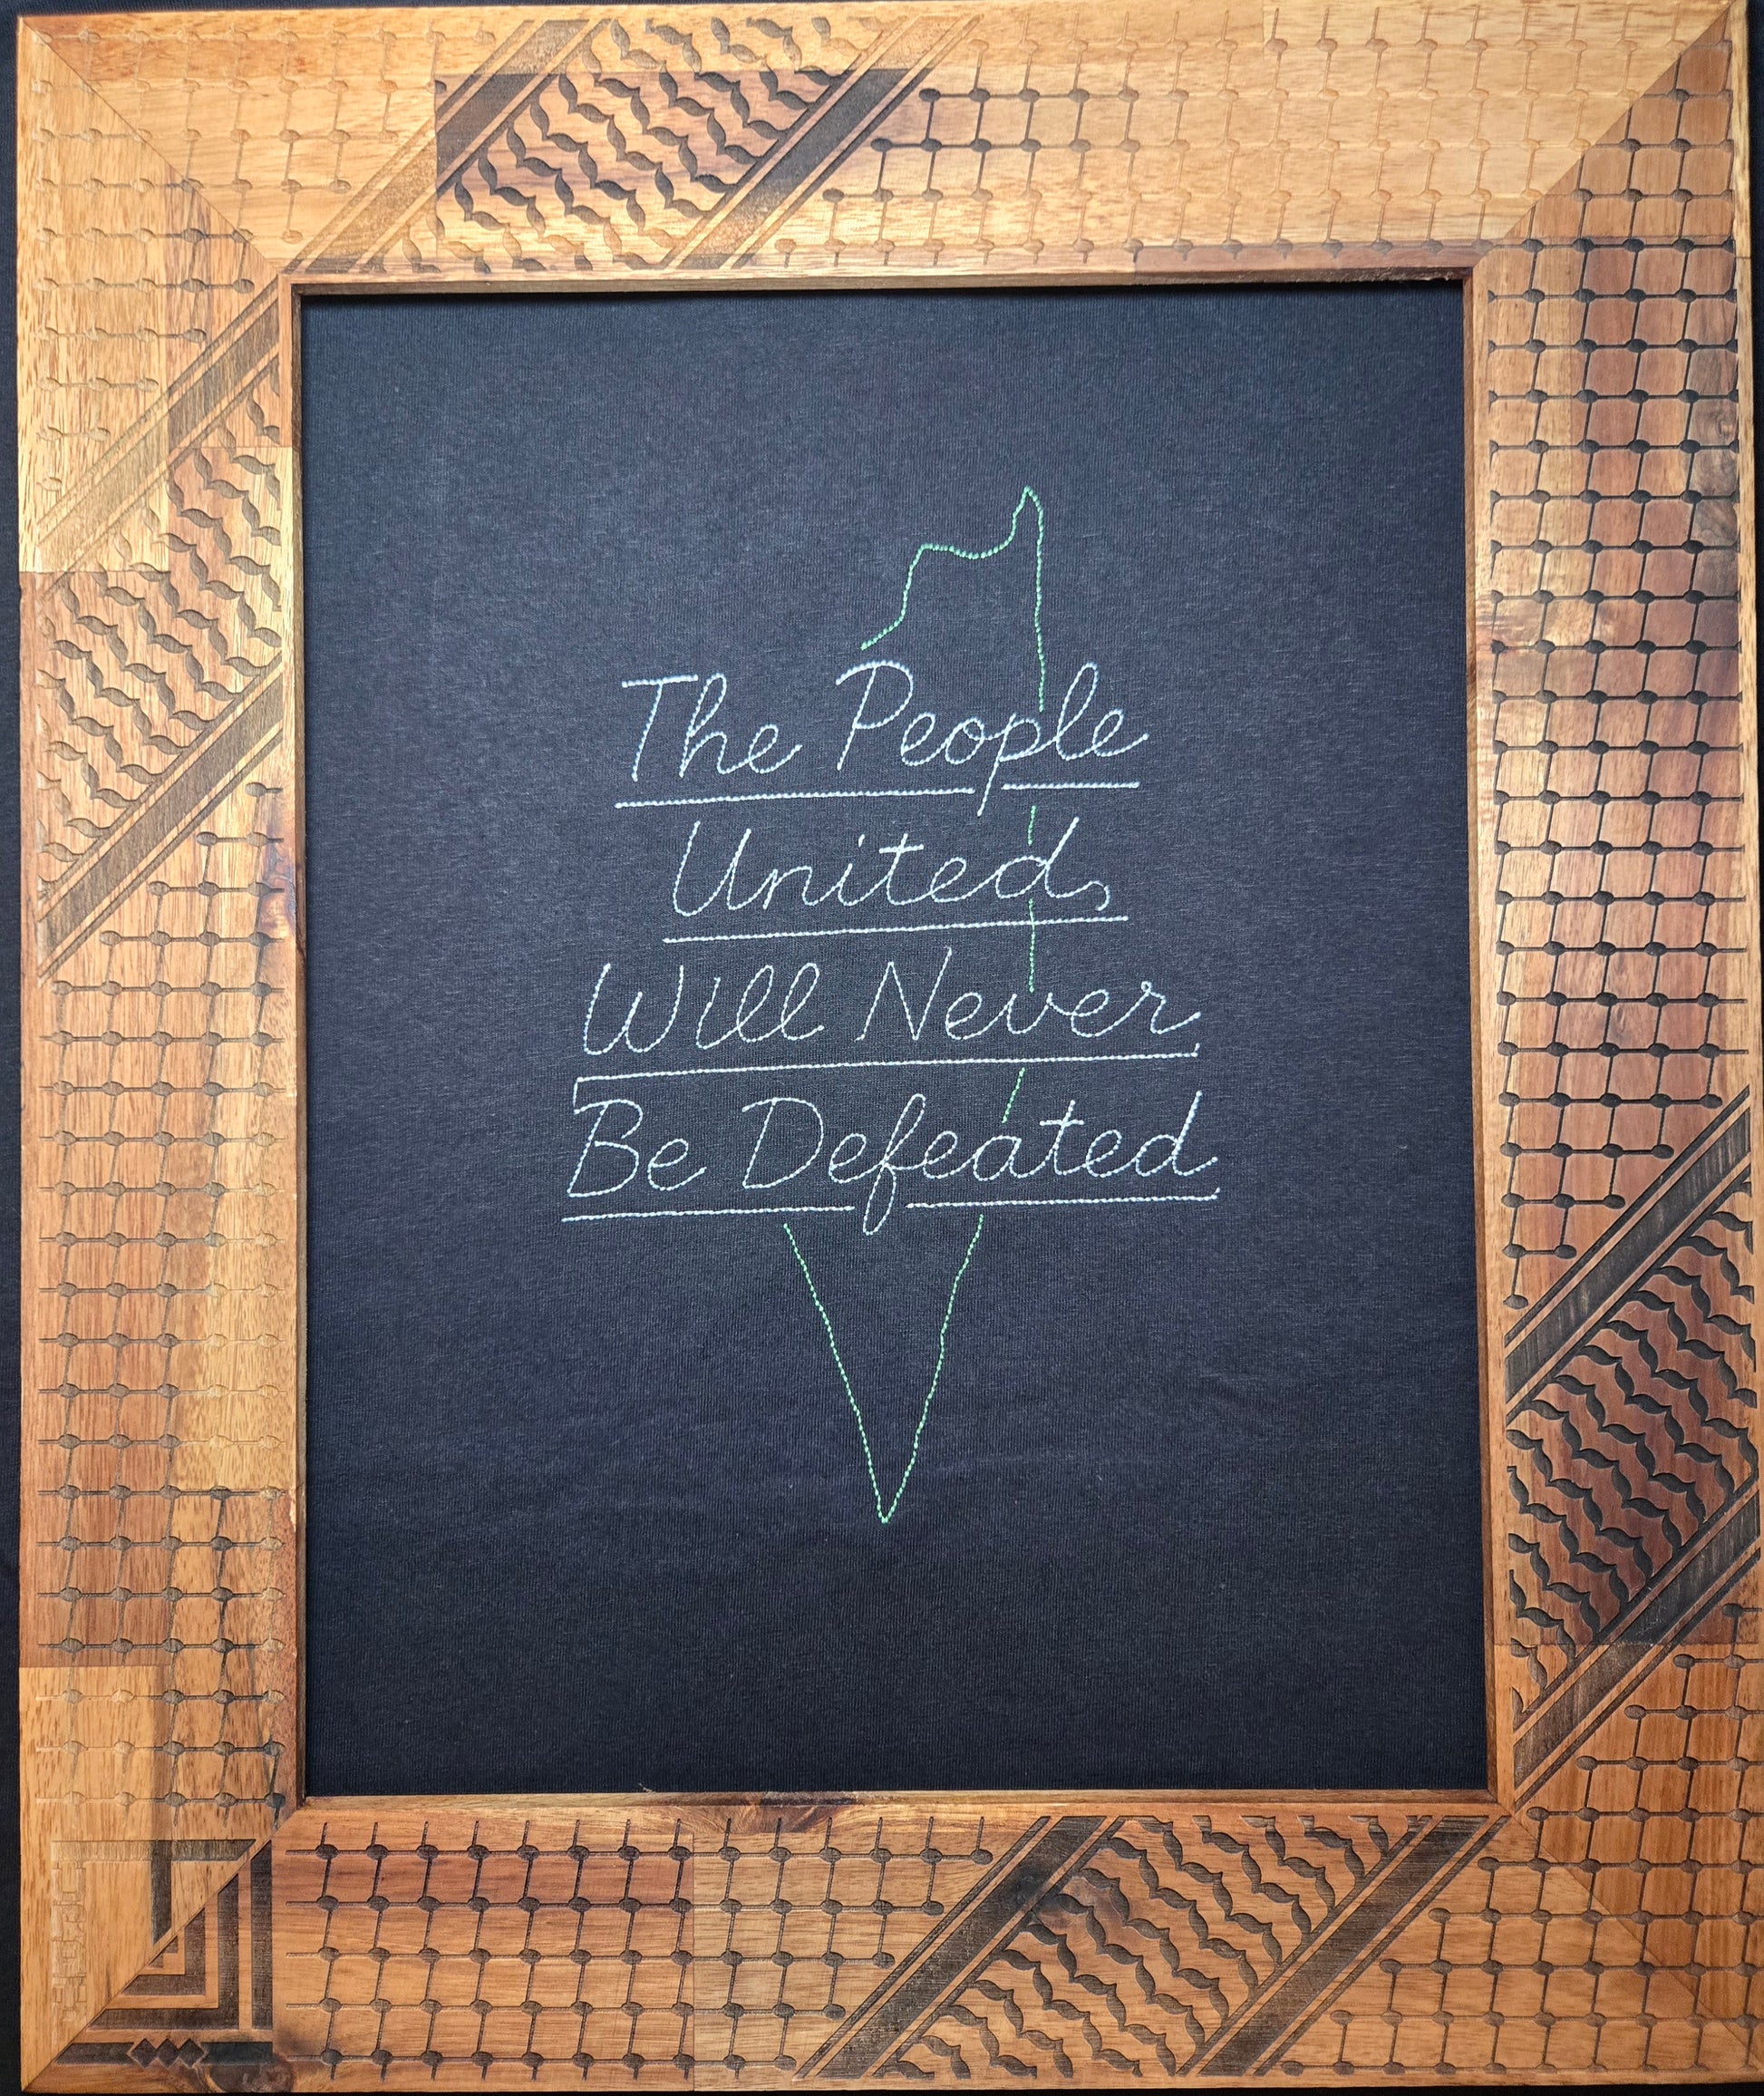 The People
United,
Will Never
Be Defeated